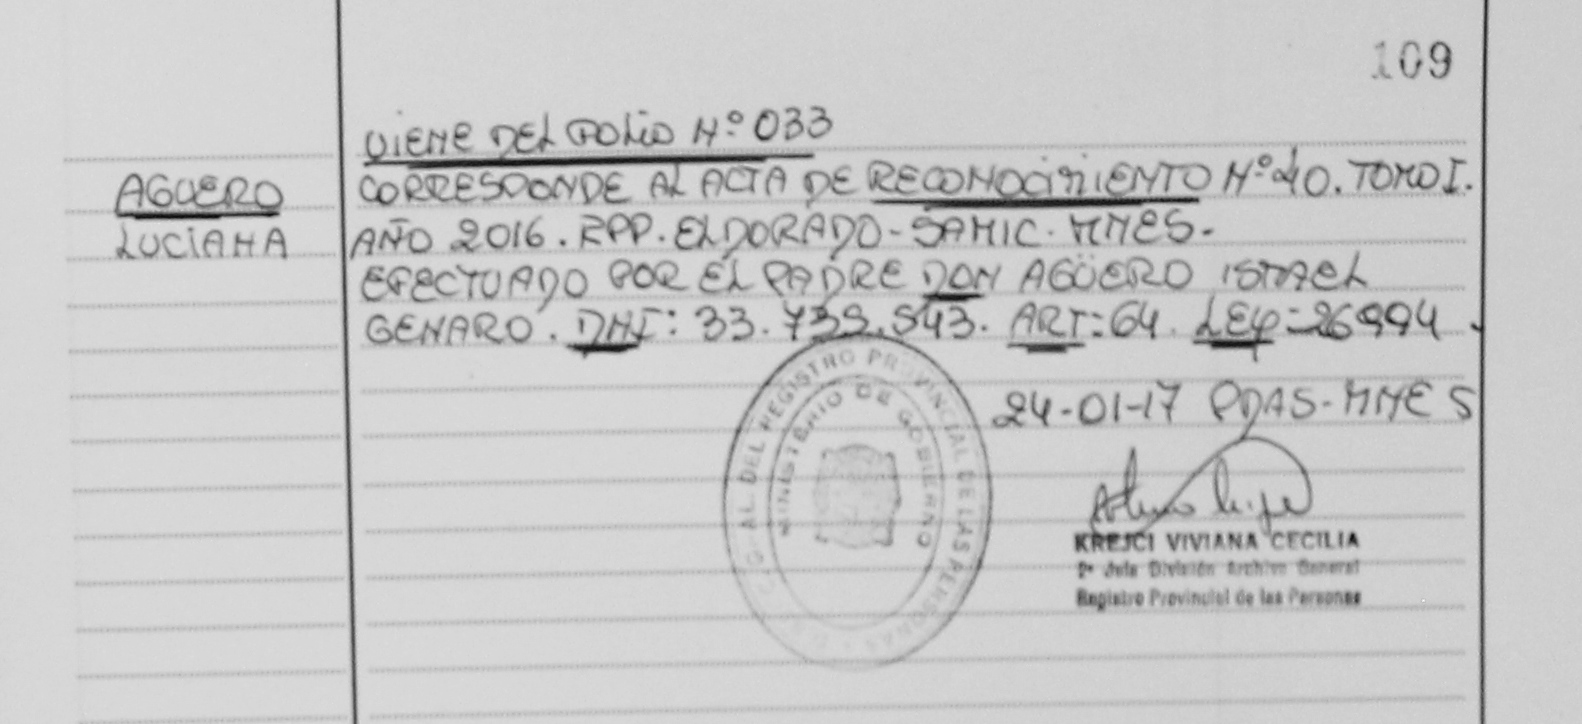 109
VIENE DEL FOLIO Nº 033
AGUERO
LUCIANA
CORRESPONDE AL ACTA DE RECONOCIMIENTO Nº 40. TOMO I.
AÑO 2016. RPP. ELDORADO - SAMIC. MNES.
EFECTUADO POR EL PADRE DON AGÜERO ISMAEL
GENARO. DNI: 33.739.543. ART: 64. LEY = 26994.
24-01-17 PDAS-MNES
REGISTRO PROVINCIAL DE LAS PERSONAS
MINISTERIO DE GOBIERNO
KREJCI VIVIANA CECILIA
2ª Jefa División Archivo General
Registro Provincial de las Personas